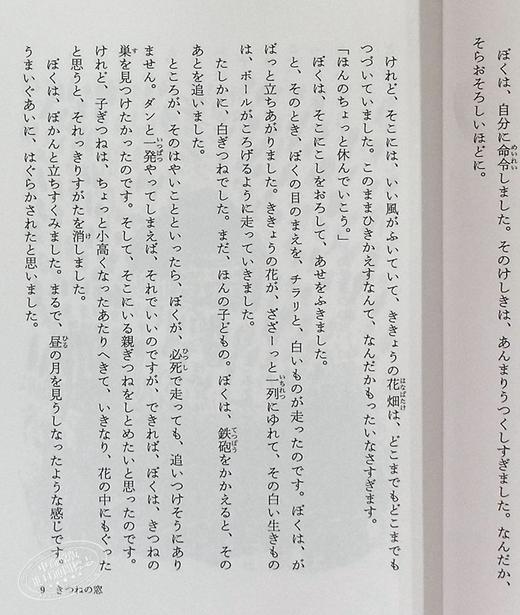 ぼくは、自分に命令しました。そのけしきは、あんまりうつくしすぎました。なんだか、
そらおそろしいほどに。
けれど、そこには、いい風がふいていて、ききょうの花畑は、どこまでもどこまでも
つづいていました。このままひきかえすなんて、なんだかもったいなさすぎます。
「ほんのちょっと休んでいこう。」
ぼくは、そこにこしをおろして、あせをふきました。
と、そのとき、ぼくの目のまえを、チラリと、白いものが走ったのです。ぼくは、が
ばっと立ちあがりました。ききょうの花が、ざざーっと一列にゆれて、その白い生きもの
は、ボールがころげるように走っていきました。
たしかに、白ぎつねでした。まだ、ほんの子ども。ぼくは、鉄砲をかかえると、その
あとを追いました。
ところが、そのはやいことといったら、ぼくが、必死で走っても、追いつけそうにあり
ません。ダンと一発やってしまえば、それでいいのですが、できれば、ぼくは、きつねの
巣を見つけたかったのです。そして、そこにいる親ぎつねをしとめたいと思ったのです。
けれど、子ぎつねは、ちょっと小高くなったあたりへきて、いきなり、花の中にもぐった
と思うと、それっきりすがたを消しました。
ぼくは、ぽかんと立ちすくみました。まるで、昼の月を見うしなったような感じです。
うまいぐあいに、はぐらかされたと思いました。
9 きつねの窓